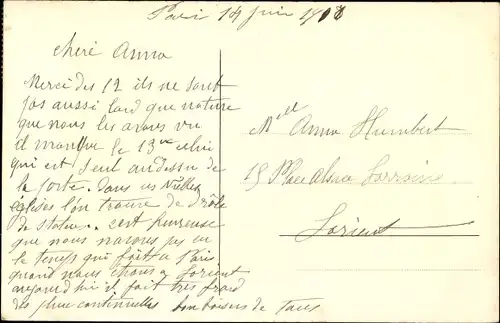 Paris 14 juin 1908
chère Anna
Merci des 12 ils ne sont
pas aussi laid que nature
que nous les avons vu
il manque le 13me celui
qui est seul au dessu de
la porte. Dans ces vieilles
églises l'on trouve de drôle
de statues. c'est heureuse
que nous n'avons pas eu
le temps qui fait a Paris
quand nous étions a Lorient
aujourd'hui il fait très froid
des pluie continuelles bon baisers de tous
Melle Anna Humbert
15 Place Alsace Lorraine
Lorient